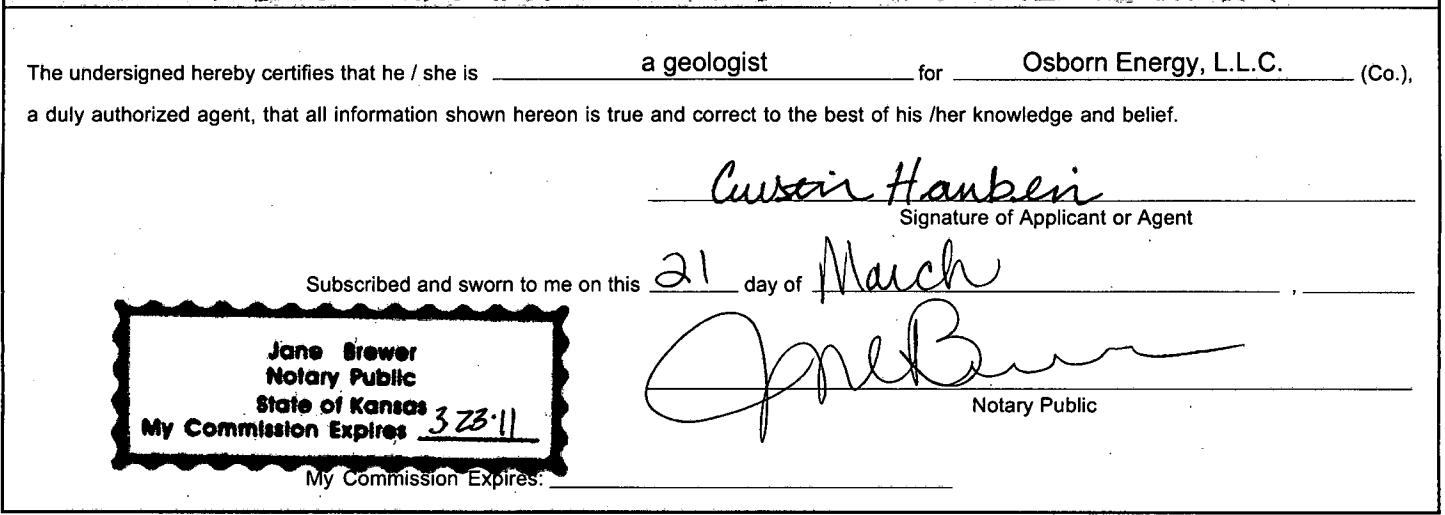 The undersigned hereby certifies that he / she is a geologist for Osborn Energy, L.L.C. (Co.),
a duly authorized agent, that all information shown hereon is true and correct to the best of his /her knowledge and belief.
Signature of Applicant or Agent
Subscribed and sworn to me on this 21 day of March ,
Jane Brewer
Notary Public
State of Kansas
My Commission Expires 3-23-11
Jane Brewer
Notary Public
My Commission Expires: